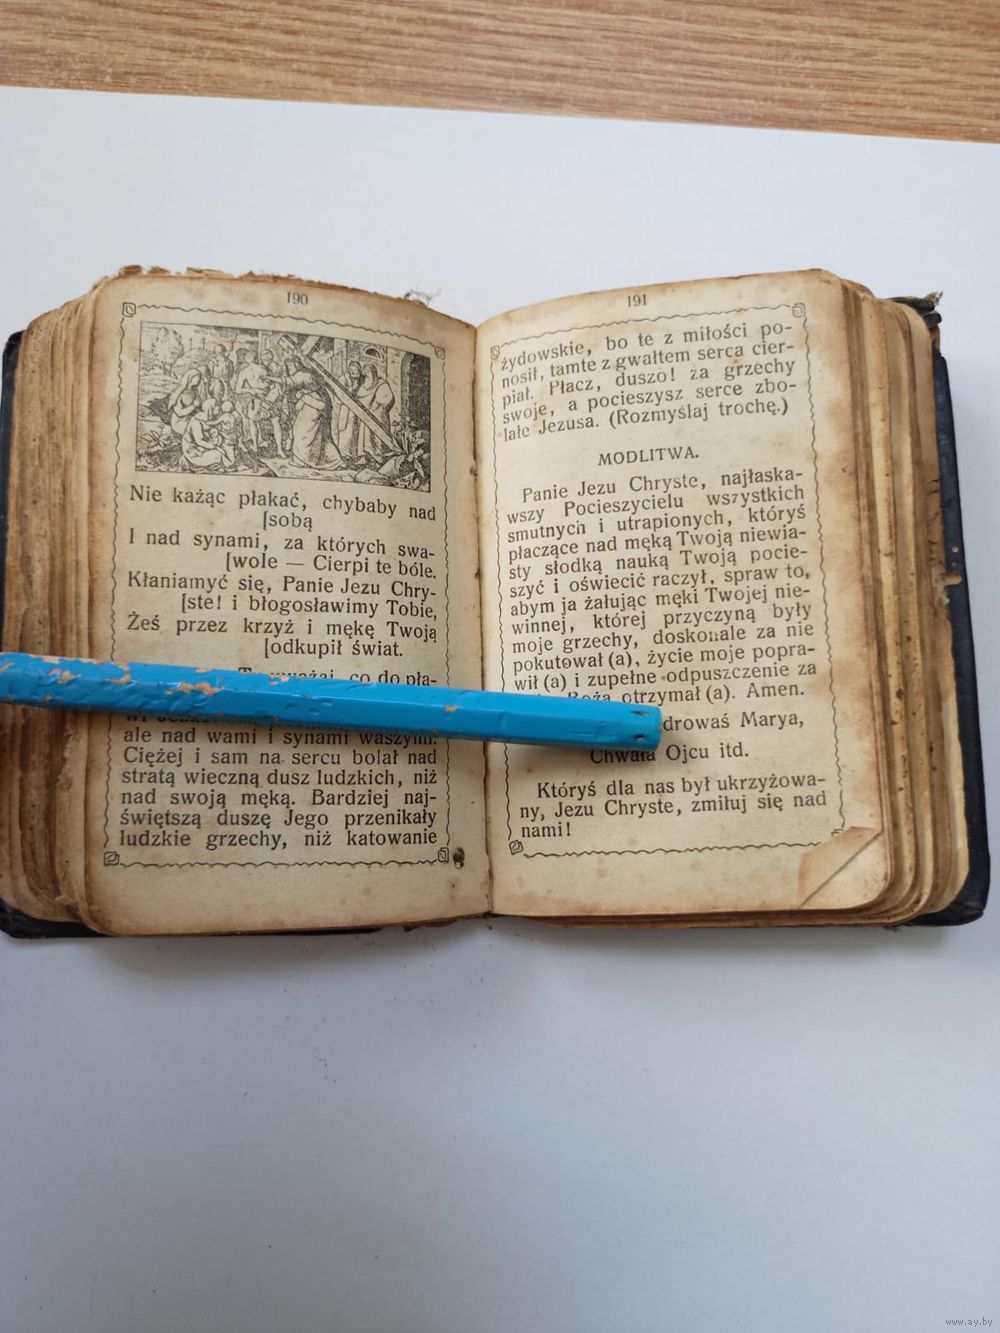 190
Nie każąc płakać, chybaby nad
[sobą
I nad synami, za których swa-
[wole — Cierpi te bóle.
Kłaniamyć się, Panie Jezu Chry-
[ste! i błogosławimy Tobie,
Żeś przez krzyż i mękę Twoją
[odkupił świat.
co do pła-
ale nad wami i synami waszymi.
Ciężej i sam na sercu bolał nad
stratą wieczną dusz ludzkich, niż
nad swoją męką. Bardziej naj-
świętszą duszę Jego przenikały
ludzkie grzechy, niż katowanie
191
żydowskie, bo te z miłości po-
nosił, tamte z gwałtem serca cier-
piał. Płacz, duszo! za grzechy
swoje, a pocieszysz serce zbo-
lałe Jezusa. (Rozmyślaj trochę.)
MODLITWA.
Panie Jezu Chryste, najłaska-
wszy Pocieszycielu wszystkich
smutnych i utrapionych, któryś
płaczące nad męką Twoją niewia-
sty słodką nauką Twoją pocie-
szyć i oświecić raczył, spraw to,
abym ja żałując męki Twojej nie-
winnej, której przyczyną były
moje grzechy, doskonale za nie
pokutował (a), życie moje popra-
wił (a) i zupełne odpuszczenie za
Boża otrzymał (a). Amen.
drowaś Marya,
Chwała Ojcu itd.
Któryś dla nas był ukrzyżowa-
ny, Jezu Chryste, zmiłuj się nad
nami!
www.ay.by